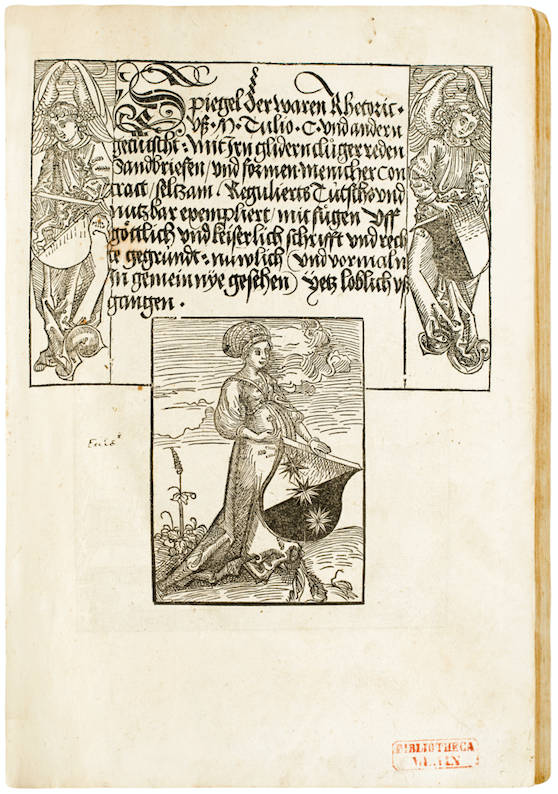 Spiegel der waren Rhetoric ·
vß · M · Tulio · C · vnd andern
getütscht : Mit Irn glidern clůger reden
Sandbriefen / vnd formen · menicher con
tract / seltzam · Regulierts Tütschs vnd
nutzbar exempliert / mit fůgen vff
göttlich vnd keiserlich schrifft vnd rech
te gegründt : nüwlich (vnd vormaln
In gemein nÿe gesehen) Yetz loblich vß
gangen ·
BIBLIOTHECA